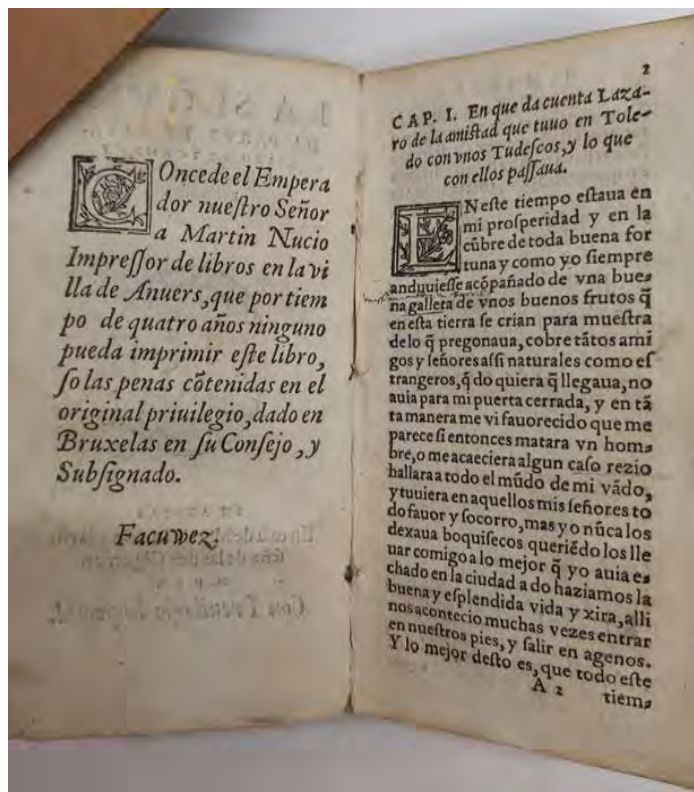 COncede el Empera
dor nueſtro Señor
a Martin Nucio
Impreſſor de libros en la vi
lla de Anuers, que por tiem
po de quatro años ninguno
pueda imprimir eſte libro,
ſo las penas cõtenidas en el
original priuilegio, dado en
Bruxelas en ſu Conſejo, y
Subſignado.
Facuwez.
2
CAP. I. En que da cuenta Laza-
ro de la amiſtad que tuuo en Tole-
do con vnos Tudeſcos, y lo que
con ellos paſſaua.
ENeſte tiempo eſtaua en
mi proſperidad y en la
cũbre de toda buena for
tuna y como yo ſiempre
anduuieſſe acõpañado de vna bue-
na galleta de vnos buenos frutos q̃
en eſta tierra ſe crian para mueſtra
delo q̃ pregonaua, cobre tãtos ami
gos y ſeñores aſſi naturales como eſ
trangeros, q̃ do quiera q̃ llegaua, no
auia para mi puerta cerrada, y en tã
ta manera me vi fauorecido que me
parece ſi entonces matara vn hom-
bre, o me acaeciera algun caſo rezio
hallara a todo el mũdo de mi vãdo,
y tuuiera en aquellos mis ſeñores to
do fauor y ſocorro, mas yo nũca los
dexaua boquiſecos queriẽdo los lle
uar comigo a lo mejor q̃ yo auia e-
chado en la ciudad a do haziamos la
buena y eſplendida vida y xira, alli
nos acontecio muchas vezes entrar
en nueſtros pies, y ſalir en agenos.
Y lo mejor deſto es, que todo eſte
A 2 tiem-